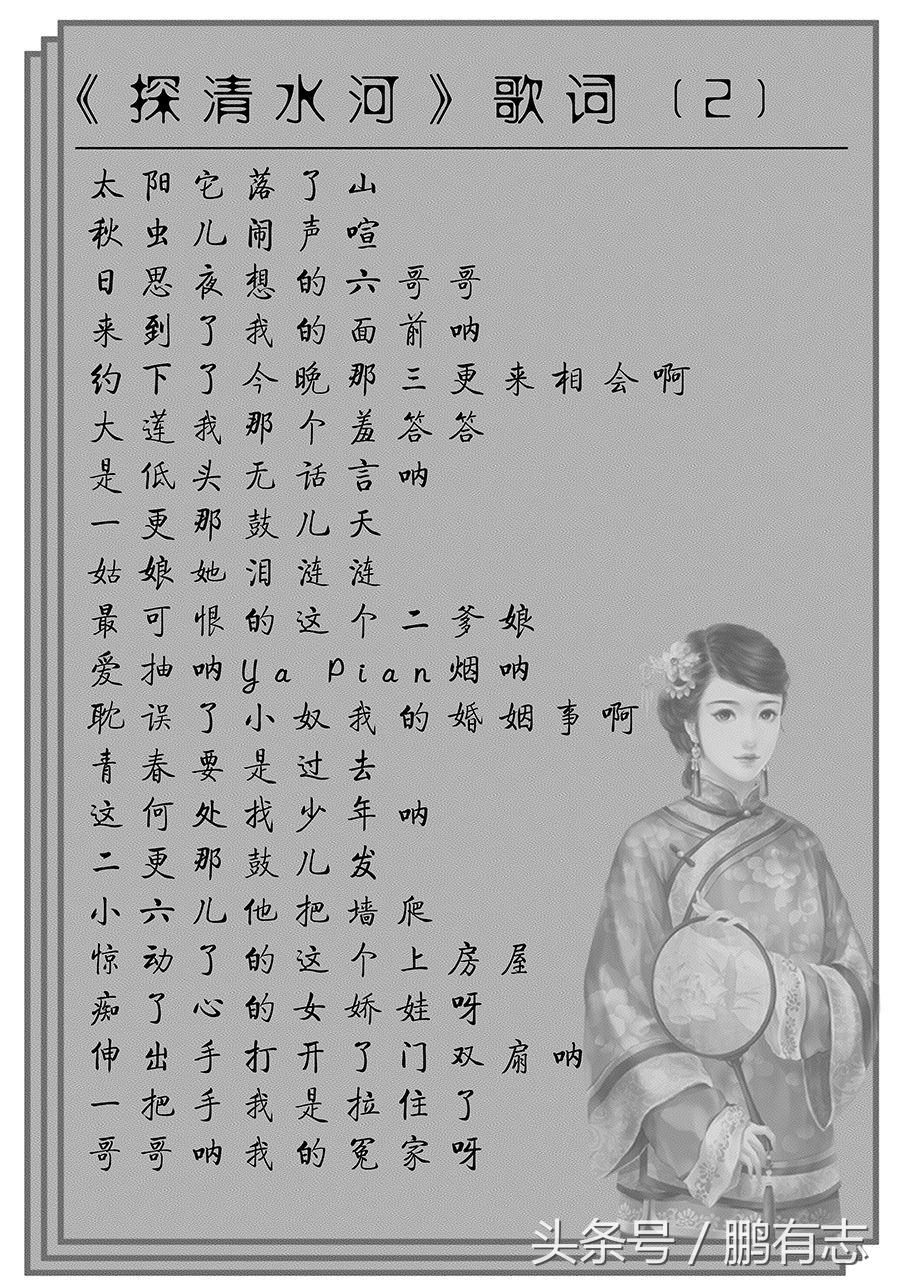 《探清水河》歌词（2）
太阳它落了山
秋虫儿闹声喧
日思夜想的六哥哥
来到了我的面前呐
约下了今晚那三更来相会啊
大莲我那个羞答答
是低头无话言呐
一更那鼓儿天
姑娘她泪涟涟
最可恨的这个二爹娘
爱抽呐Ya Pian烟呐
耽误了小奴我的婚姻事啊
青春要是过去
这何处找少年呐
二更那鼓儿发
小六儿他把墙爬
惊动了的这个上房屋
痴了心的女娇娃呀
伸出手打开了门双扇呐
一把手我是拉住了
哥哥呐我的冤家呀
头条号 / 鹏有志